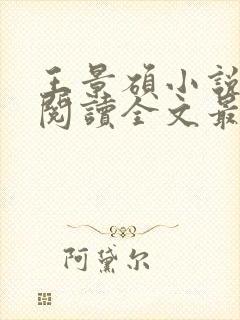 王景碩小說
閱讀全文最
阿黛尔